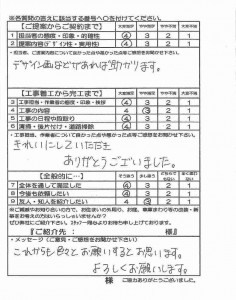 ※各質問の答えに該当する番号へ○を付けてください。
【ご提案からご契約まで】
大変満足 やや満足 やや不満 大変不満
1 担当者の態度・印象・的確性 4 3 2 1
2 提案内容(デザイン性・実用性) 4 3 2 1
デザイン画などがあれば助かります。
【工事着工から完工まで】
大変満足 やや満足 やや不満 大変不満
3 工事担当・作業者の態度・印象・挨拶 4 3 2 1
4 工事の内容 4 3 2 1
5 工事の日程や段取り 4 3 2 1
6 清掃・後片付け・道路掃除 4 3 2 1
きれいにしていただき
ありがとうございました。
【全般的に…】
7 全体を通して満足した 4 3 2 1
8 今後も依頼したい 4 3 2 1
9 友人・知人を紹介したい 4 3 2 1
【ご紹介先: 様】
・メッセージ(ご意見・ご感想をお聞かせ下さい)
これからも色々とお願いすると思います。
よろしくお願いします。
様 ご協力ありがとうございました。